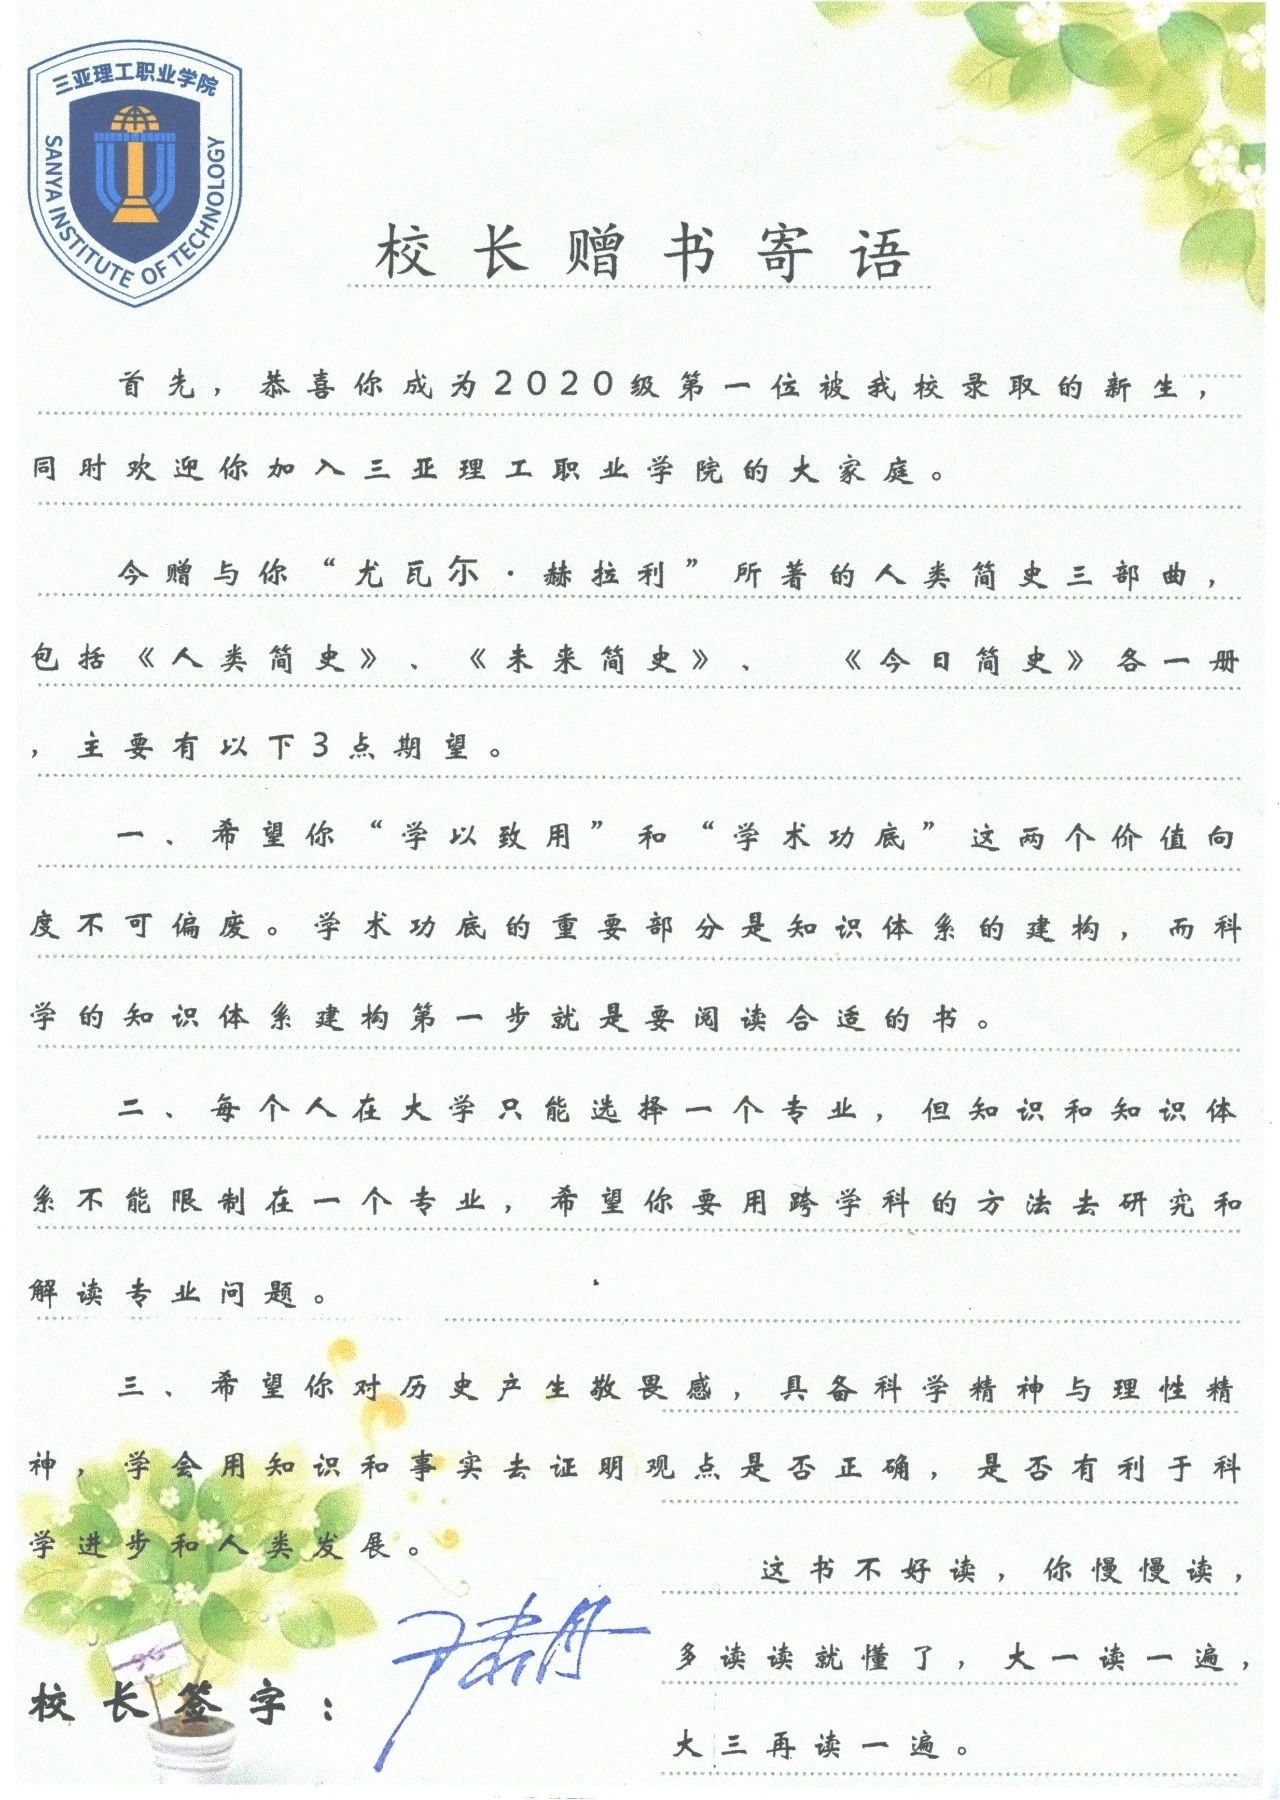 三亚理工职业学院
SANYA INSTITUTE OF TECHNOLOGY
校长赠书寄语
首先，恭喜你成为2020级第一位被我校录取的新生，
同时欢迎你加入三亚理工职业学院的大家庭。
今赠与你“尤瓦尔·赫拉利”所著的人类简史三部曲，
包括《人类简史》、《未来简史》、 《今日简史》各一册
，主要有以下3点期望。
一、希望你“学以致用”和“学术功底”这两个价值向
度不可偏废。学术功底的重要部分是知识体系的建构，而科
学的知识体系建构第一步就是要阅读合适的书。
二、每个人在大学只能选择一个专业，但知识和知识体
系不能限制在一个专业，希望你要用跨学科的方法去研究和
解读专业问题。
三、希望你对历史产生敬畏感，具备科学精神与理性精
神，学会用知识和事实去证明观点是否正确，是否有利于科
学进步和人类发展。
这书不好读，你慢慢读，
多读读就懂了，大一读一遍，
大三再读一遍。
校长签字：